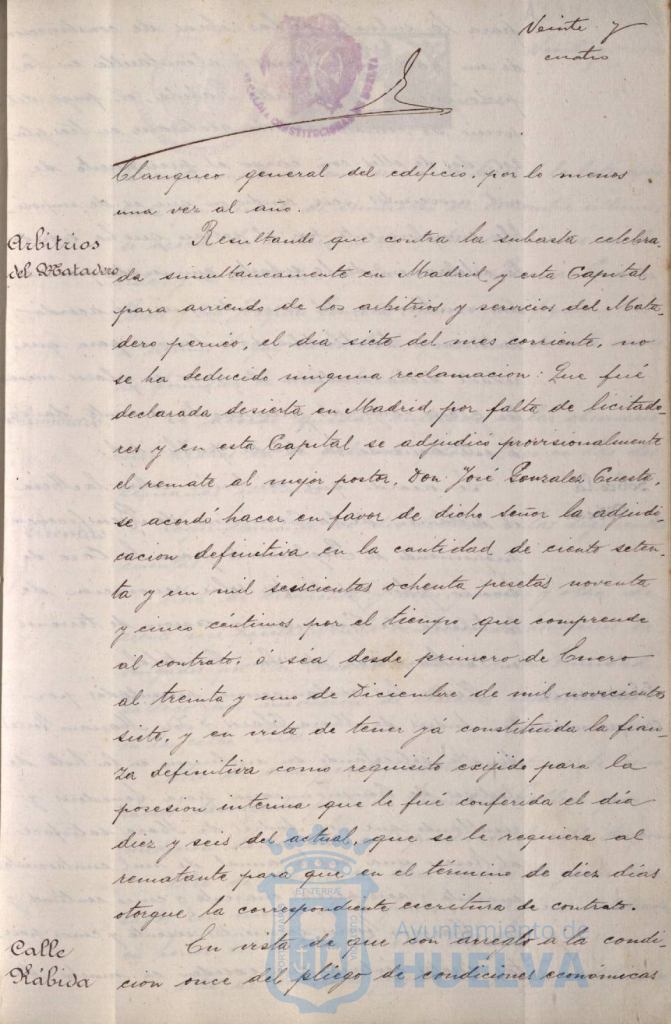 Veinte y
cuatro
ALCALDIA CONSTITUCIONAL DE HUELVA
blanqueo general del edificio, por lo menos
una vez al año.
Arbitrios
del Matadero
Resultando que contra la subasta celebra-
da simultáneamente en Madrid y esta Capital
para arriendo de los arbitrios y servicios del Mata-
dero perneo, el dia siete del mes corriente, no
se ha deducido ninguna reclamacion: Que fué
declarada desierta en Madrid por falta de licitado-
res y en esta Capital se adjudicó provisionalmente
el remate al mejor postor, Don José Gonzalez Cueste,
se acordó hacer en favor de dicho señor la adjudi-
cacion definitiva en la cantidad de ciento seten-
ta y un mil seiscientas ochenta pesetas noventa
y cinco céntimos por el tiempo que comprende
el contrato, ó séa desde primero de Enero
al treinta y uno de Diciembre de mil novecientos
siete, y en vista de tener yá constituida la fian-
za definitiva como requisito exijido para la
posesion interina que le fué conferida el día
diez y seis del actual, que se le requiera al
rematante para que en el término de diez días
otorgue la correspondiente escritura de contrato.
Calle
Rábida
En vista de que con arreglo a la condi-
cion once del pliego de condiciones económicas
Ayuntamiento de
HUELVA